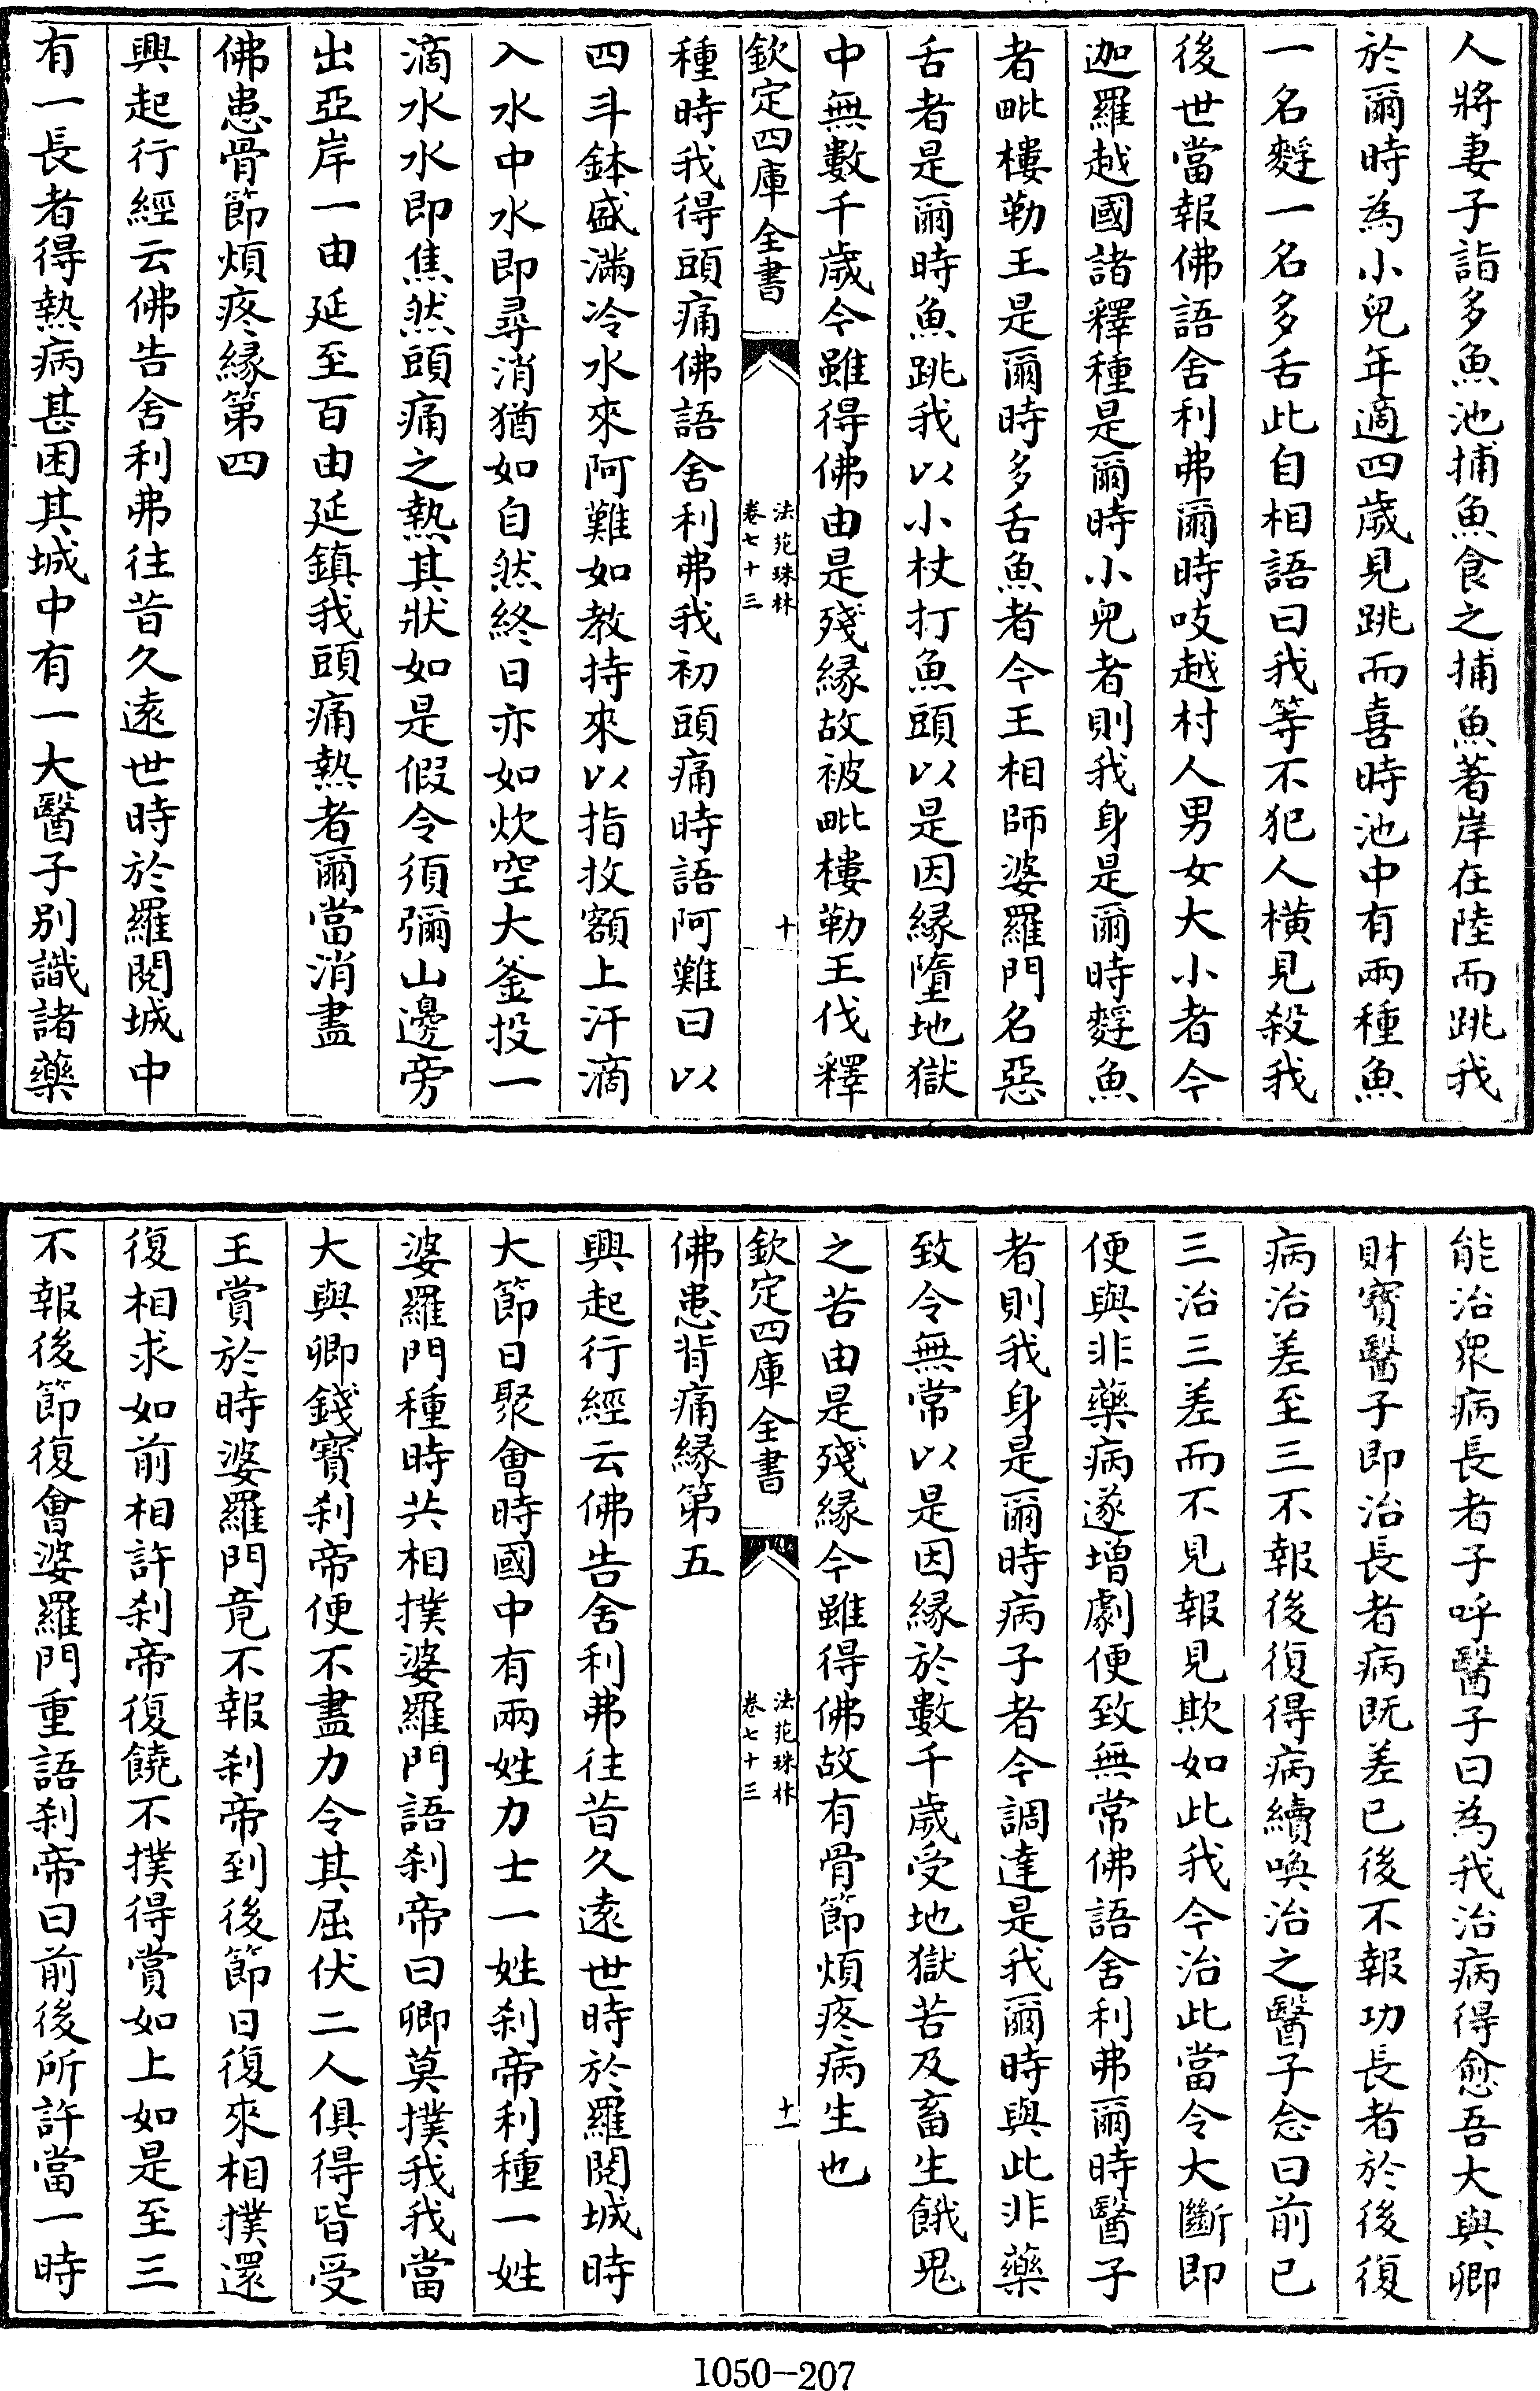 人將妻子詣多魚池捕魚食之捕魚著岸在陸而跳我
於爾時為小兒年適四歲見跳而喜時池中有兩種魚
一名麫一名多舌此自相語曰我等不犯人橫見殺我
後世當報佛語舍利弗爾時吱越村人男女大小者今
迦羅越國諸釋種是爾時小兒者則我身是爾時麫魚
者毗樓勒王是爾時多舌魚者今王相師婆羅門名惡
舌者是爾時魚跳我以小杖打魚頭以是因緣墮地獄
中無數千歲今雖得佛由是殘緣故被毗樓勒王伐釋
欽定四庫全書
法苑珠林
卷七十三
十
種時我得頭痛佛語舍利弗我初頭痛時語阿難曰以
四斗鉢盛滿冷水來阿難如教持來以指抆額上汗滴
入水中水即尋消猶如自然終日亦如炊空大釜投一
滴水水即焦然頭痛之熱其狀如是假令須彌山邊旁
出亞岸一由延至百由延鎮我頭痛熱者爾當消盡
佛患骨節煩疼緣第四
興起行經云佛告舍利弗往昔久遠世時於羅閱城中
有一長者得熱病甚困其城中有一大醫子別識諸藥
能治眾病長者子呼醫子曰為我治病得愈吾大與卿
財寶醫子即治長者病既差已後不報功長者於後復
病治差至三不報後復得病續喚治之醫子念曰前已
三治三差而不見報見欺如此我今治此當令大斷即
便與非藥病遂增劇便致無常佛語舍利弗爾時醫子
者則我身是爾時病子者今調達是我爾時與此非藥
致令無常以是因緣於數千歲受地獄苦及畜生餓鬼
之苦由是殘緣今雖得佛故有骨節煩疼病生也
欽定四庫全書
法苑珠林
卷七十三
十一
佛患背痛緣第五
興起行經云佛告舍利弗往昔久遠世時於羅閱城時
大節日聚會時國中有兩姓力士一姓剎帝利種一姓
婆羅門種時共相撲婆羅門語剎帝曰卿莫撲我我當
大與卿錢寶剎帝便不盡力令其屈伏二人俱得皆受
王賞於時婆羅門竟不報剎帝到後節日復來相撲還
復相求如前相許剎帝復饒不撲得賞如上如是至三
不報後節復會婆羅門重語剎帝曰前後所許當一時
1050-207